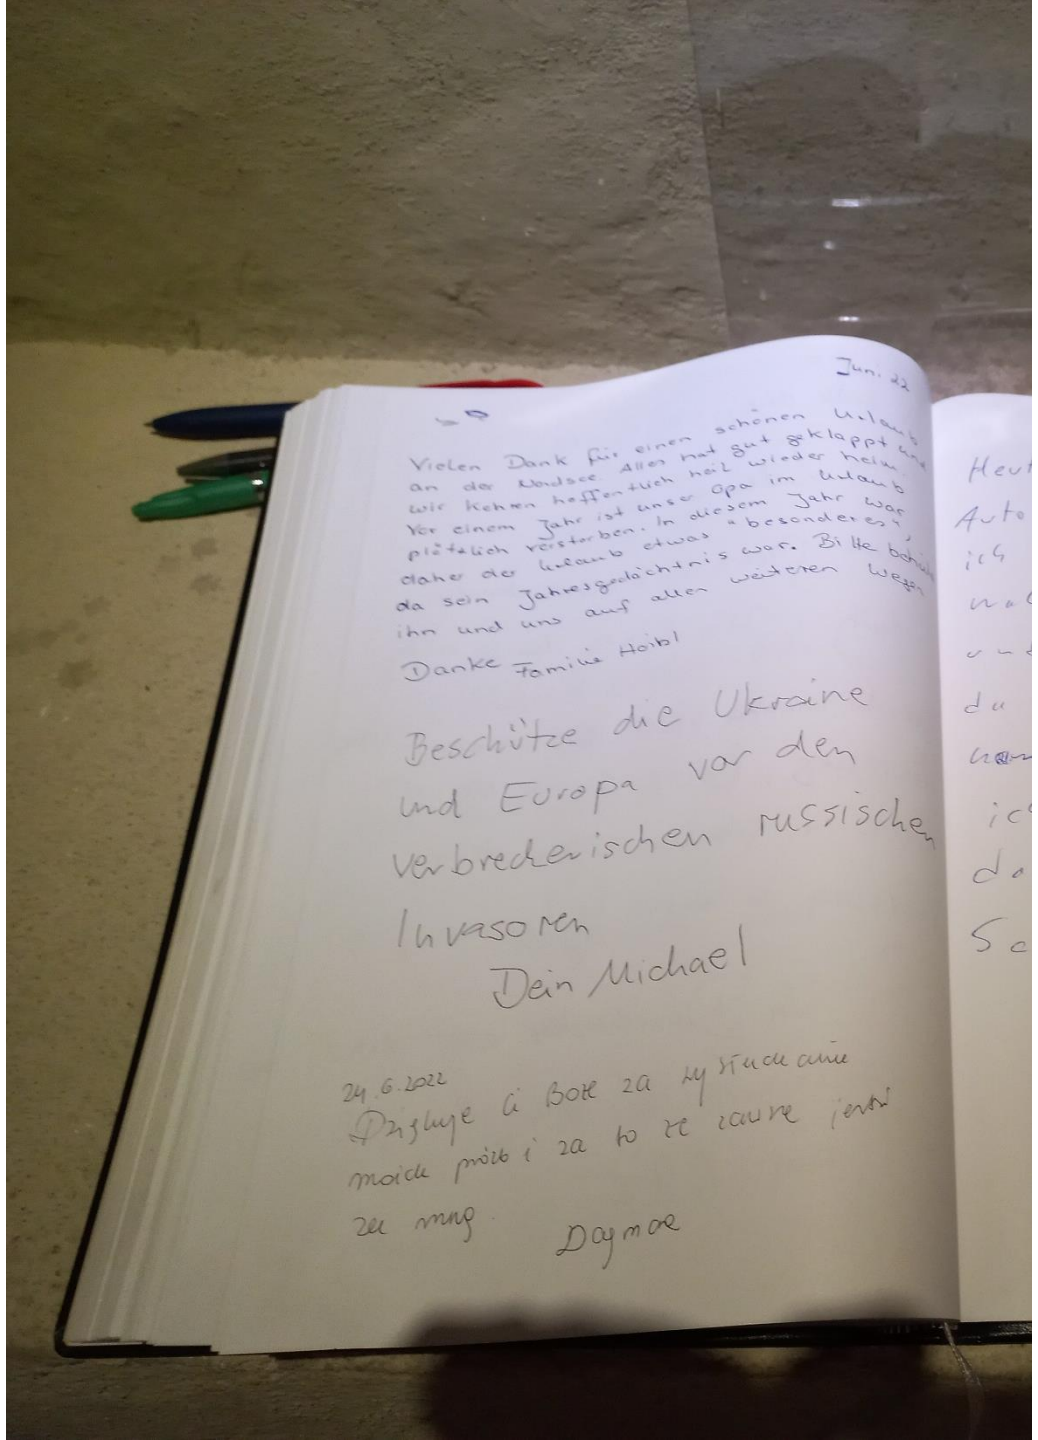 Jun. 22
Vielen Dank für einen schönen Urlaub
an der Nordsee. Alles hat gut geklappt und
wir kehren hoffentlich heil wieder heim.
Vor einem Jahr ist unser Opa im Urlaub
plötzlich verstorben. In diesem Jahr war
daher der Urlaub etwas "besonderes",
da sein Jahresgedächtnis war. Bitte
ihn und uns auf allen weiteren Wegen
Danke Familie
Beschütze die Ukraine
und Europa vor den
verbrecherischen russischen
Invasoren
Dein Michael
24.6.2022
Dziękuję Ci Boże za wysłuchanie
moich próśb i za to że zawsze jesteś
ze mną.
Dagmar
Heut
Auto
ich
du
ic
da
Sc